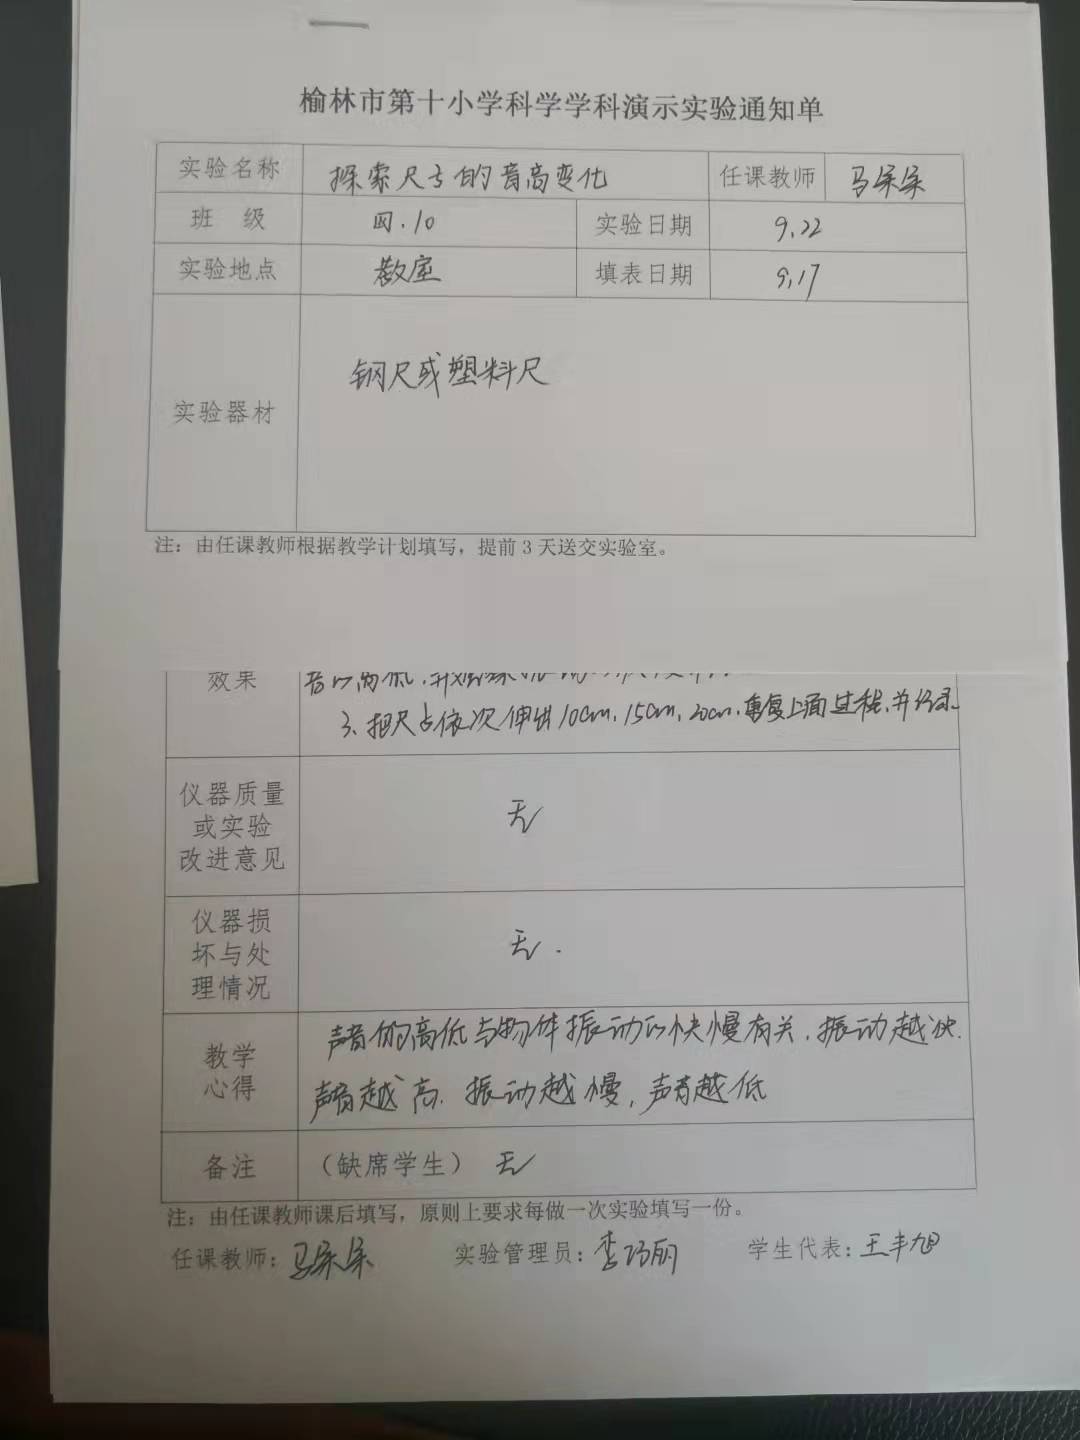 榆林市第十小学科学学科演示实验通知单
实验名称 探索尺子的音高变化 任课教师 马朵朵
班 级 四.10 实验日期 9.22
实验地点 教室 填表日期 9.17
实验器材 钢尺或塑料尺
注：由任课教师根据教学计划填写，提前3天送交实验室。
效果 音的高低，并
3、把尺子依次伸出10cm，15cm，20cm，重复上面过程，并记录
仪器质量
或实验
改进意见 无
仪器损
坏与处
理情况 无.
教学
心得 声音的高低与物体振动的快慢有关，振动越快，
声音越高，振动越慢，声音越低
备注 （缺席学生） 无
注：由任课教师课后填写，原则上要求每做一次实验填写一份。
任课教师：马朵朵 实验管理员：李巧丽 学生代表：王丰旭